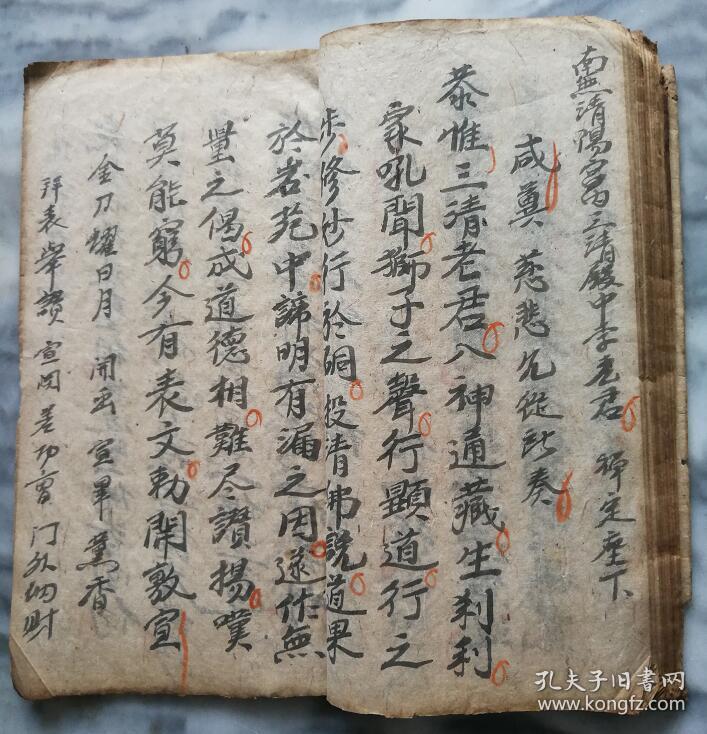 南無清陽宮內三清殿中李老君 禪定座下
咸真 慈悲允從訴奏
恭惟三清老君八神通藏生刹利
家吼聞獅子之聲行顯道行之
步修沙行於硐投清佛說道果
於岩苑中諦明有漏之因遂作無
量之偈成道德相難尽讃揚嘆
莫能窮今有表文勅開敷宣
金刀耀日月 開函 宣畢 薰香
拜表舉讃 宣閱 功 門外納財
孔夫子旧书网
www.kongfz.com